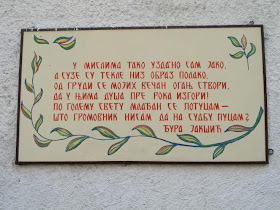 У МИСЛИМА ТАКО УЗДАНО САМ ЈАКО,
А СУЗЕ СУ ТЕКЛЕ НИЗ ОБРАЗ ПОЛАКО,
ОД ГРУДИ СЕ МОЈИХ ВЕЧАН ОГАЊ СТВОРИ,
ДА У ЊИМА ДУША ПРЕ РОКА ИЗГОРИ!
ПО ГОЛЕМУ СВЕТУ МЛАЂАН СЕ ПОТУЦАМ—
ШТО ГРОМОВНИК НИСАМ ДА НА СУДБУ ПУЦАМ?
ЂУРА ЈАКШИЋ